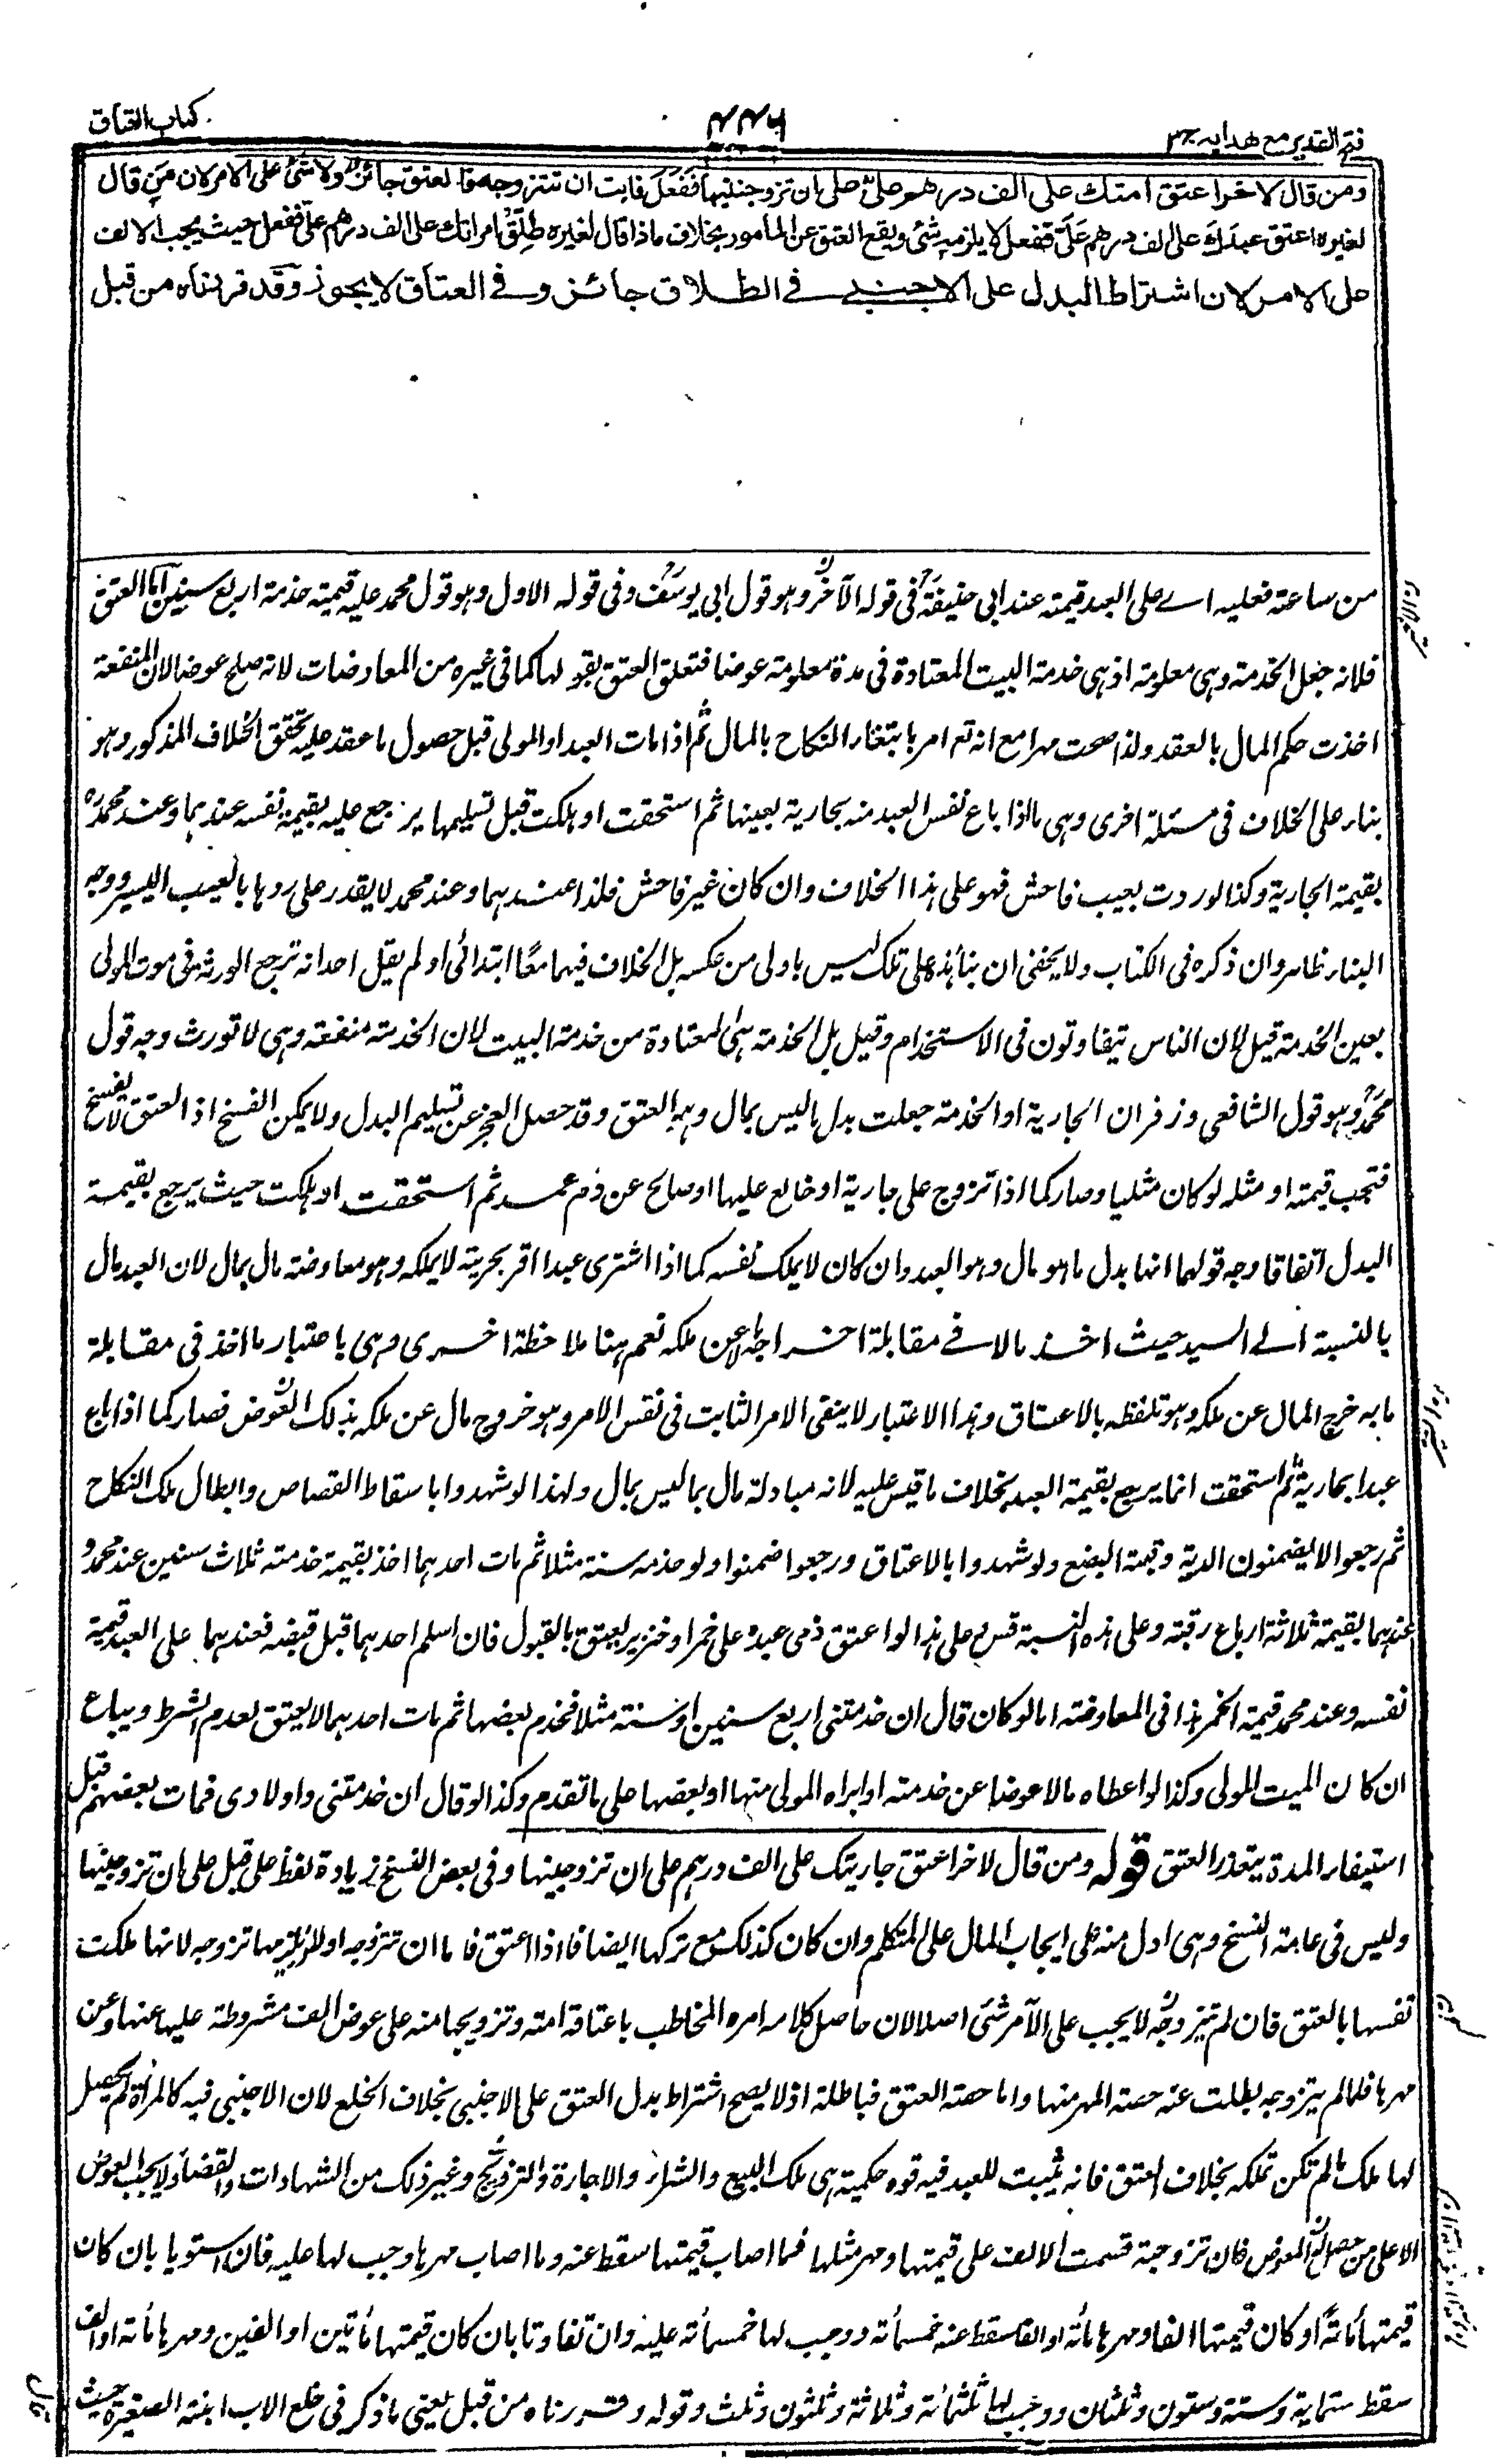 فتح القدير مع هدايه ج٣
٤٤٦
كتاب العتاق
ومن قال لاخر اعتق امتك على الف درهم علىّ على ان تزوجنيها ففعل فابت ان تتزوجه فالعتق جائز ولا شئ على الامر لان من قال
لغيره اعتق عبدك على الف درهم علىّ ففعل لا يلزمه شئ ويقع العتق عن المأمور بخلاف ما اذا قال لغيره طلق امرأتك على الف درهم علىّ ففعل حيث يجب الالف
على الامر لان اشتراط البدل على الاجنبى فى الطلاق جائز وفى العتاق لا يجوز وقد قررناه من قبل
من ساعته فعليه اے على العبد قيمته عند ابى حنيفة فى قوله الآخر وهو قول ابى يوسف وفى قوله الاول وهو قول محمد عليه قيمة خدمته اربع سنين اما العتق
فلانه جعل الخدمة وهى معلومة اذ هى خدمة البيت المعتادة فى مدة معلومة عوضا فتعلق العتق بقبولها كما فى غيره من المعاوضات لانه صلح عوضا لان المنفعة
اخذت حكم المال بالعقد ولذا صحت مهرا مع انه تعالى امر بابتغاء النكاح بالمال ثم اذا مات العبد او المولى قبل حصول ما عقد عليه تحقق الخلاف المذكور وهو
بناء على الخلاف فى مسئلة اخرى وهى ما اذا باع نفس العبد منه بجارية بعينها ثم استحقت او هلكت قبل تسليمها يرجع عليه بقيمة نفسه عندهما وعند محمد ره
بقيمة الجارية وكذا لو ردت بعيب فاحش فهو على هذا الخلاف وان كان غير فاحش فلذا عندهما وعند محمد لا يقدر على ردها بالعيب اليسير ووجه
البناء ظاهر وان ذكره فى الكتاب ولا يخفى ان بناء هذه على تلك ليس باولى من عكسه بل الخلاف فيهما معًا ابتدائى اولم يقل احد انه ترجع الورثة فى موت المولى
بعين الخدمة قيل لان الناس يتفاوتون فى الاستخدام وقيل بل الخدمة هى المعتادة من خدمة البيت لان الخدمة منفعة وهى لا تورث وجه قول
محمد وهو قول الشافعى وزفر ان الجارية او الخدمة جعلت بدل ما ليس بمال وهو العتق وقد حصل العجز عن تسليم البدل ولا يمكن الفسخ اذ العتق لا يفسخ
فتجب قيمته او مثله لو كان مثليا وصار كما اذا تزوج على جارية او خالع عليها او صالح عن دم عمد ثم استحقت او هلكت حيث يرجع بقيمة
البدل اتفاقا وجه قولهما انها بدل ما هو مال وهو العبد وان كان لا يملك نفسه كما اذا اشترى عبدا اقر بحريته لا يملكه وهو معاوضة مال بمال لان العبد مال
بالنسبة الى السيد حيث اخذ مالا فى مقابلة اخراجه عن ملكه نعم هنا ملاحظة اخرى وهى باعتبار ما اخذ فى مقابلة
ما به خرج المال عن ملكه وهو تلفظه بالاعتاق وهذا الاعتبار لا ينفى الامر الثابت فى نفس الامر وهو خروج مال عن ملكه بذلك العوض فصار كما اذا باع
عبدا بجارية ثم استحقت انما يرجع بقيمة العبد بخلاف ما قيس عليه لانه مبادلة مال بما ليس بمال ولهذا لو شهدوا باسقاط القصاص وابطال ملك النكاح
ثم رجعوا لا يضمنون الدية وقيمة البضع ولو شهدوا بالاعتاق ورجعوا ضمنوا ولو خدمه سنة مثلا ثم مات احدهما اخذ بقيمة خدمته ثلاث سنين عند محمد و
عندهما بقيمة ثلاثة ارباع رقبته وعلى هذه النسبة قس على هذا لو اعتق ذمى عبده على خمر او خنزير يعتق بالقبول فان اسلم احدهما قبل قبضه فعندهما على العبد قيمة
نفسه وعند محمد قيمة الخمر هذا فى المعاوضة اما لو كان قال ان خدمتنى اربع سنين او سنة مثلا فخدم بعضها ثم مات احدهما لا يعتق لعدم الشرط ويباع
ان كان الميت المولى وكذا لو اعطاه مالا عوضا عن خدمته او ابراه المولى منها او بعضها على ما تقدم وكذا لو قال ان خدمتنى واولادى فمات بعضهم قبل
استيفاء المدة يتعذر العتق قوله ومن قال لاخر اعتق جاريتك على الف درهم على ان تزوجنيها وفى بعض النسخ زيادة لفظ على قبل على ان تزوجنيها
وليس فى عامة النسخ وهى ادل منه على ايجاب المال على المتكلم وان كان كذلك مع تركها ايضا فاذا اعتق فاما ان تتزوجه اولا ولا يلزمها تزوجه لانها ملكت
نفسها بالعتق فان لم تتزوجه لا يجب على الآمر شئ اصلا لان حاصل كلامه امره المخاطب باعتاقه امته وتزويجها منه على عوض الف مشروطة عليه عنها وعن
مهرها فلما لم يتزوجه بطلت عنه حصة المهر منها واما حصة العتق فباطلة اذ لا يصح اشتراط بدل العتق على الاجنبى بخلاف الخلع لان الاجنبى فيه كالمرأة لم يحصل
لها ملك ما لم تكن تملكه بخلاف العتق فانه يثبت للعبد فيه قوة حكمية هى ملك البيع والشراء والاجارة والتزويج وغير ذلك من الشهادات والقضاء ولا يجب العوض
الا على من حصل له المعوض فان تزوجته قسمت الالف على قيمتها ومهر مثلها فما اصاب قيمتها سقط عنه وما اصاب مهرها وجب لها عليه فان استويا بان كان
قيمتها مائة او كان قيمتها الفا ومهرها مائة او الفا سقط عنه خمسمائة ووجب لها خمسمائة عليه وان تفاوتا بان كان قيمتها مأتين او الفين ومهرها مائة او الف
سقط ستماية وستة وستون وثلثان ووجب لها ثلثمائة وثلاثة وثلثون وثلث وقوله وقررناه من قبل يعنى ما ذكر فى خلع الاب ابنته الصغيرة حيث
قال